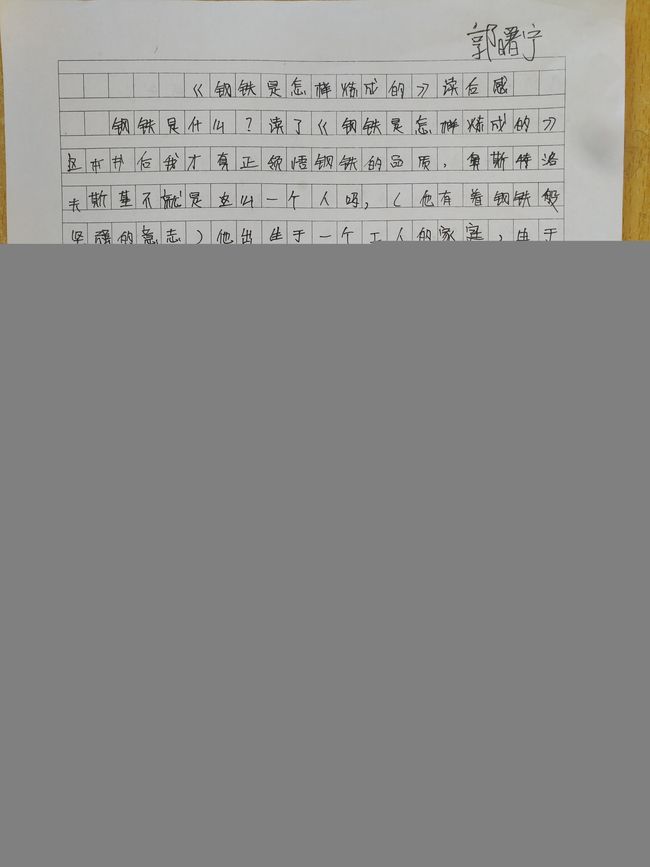 郭曙宁
《钢铁是怎样炼成的》读后感
钢铁是什么？读了《钢铁是怎样炼成的》
这本书后我才真正领悟钢铁的品质，奥斯特洛
夫斯基不就是这么一个人吗，（他有着钢铁般
坚强的意志）他出生于一个工人的家庭，由于